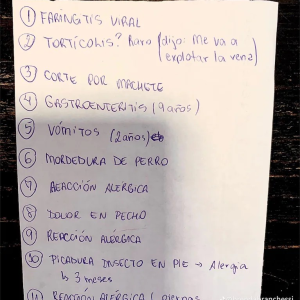 1 FARINGITIS VIRAL
2 TORTÍCOLIS? Raro (dijo: Me va a
explotar la vena)
3 CORTE POR MACHETE
4 GASTROENTERITIS (9 años)
5 VÓMITOS (2 años)
6 MORDEDURA DE PERRO
7 REACCIÓN ALERGICA
8 DOLOR EN PECHO
9 REACCIÓN ALÉRGICA
10 PICADURA INSECTO EN PIE → Alergia
↳ 3 meses
11 REACCIÓN ALÉRGICA ( piernas